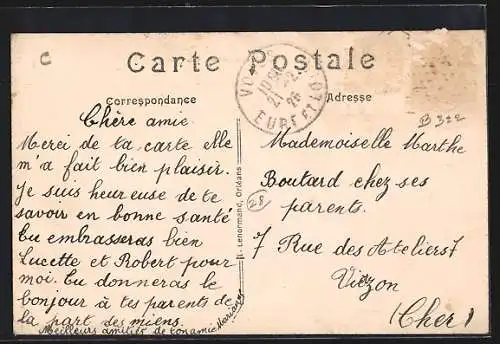 C
Carte Postale
Correspondance
Adresse
EURE ET L
26
B322
Chère amie
Merci de ta carte elle
m'a fait bien plaisir.
Je suis heureuse de te
savoir en bonne santé
Tu embrasseras bien
Lucette et Robert pour
moi. Tu donneras le
bonjour à tes parents de
la part des miens.
Meilleurs amitiés de ton amie
L. Lenormand, Orléans
28
Mademoiselle Marthe
Boutard chez ses
parents.
7 Rue des Ateliers 7
Vierzon
(Cher)